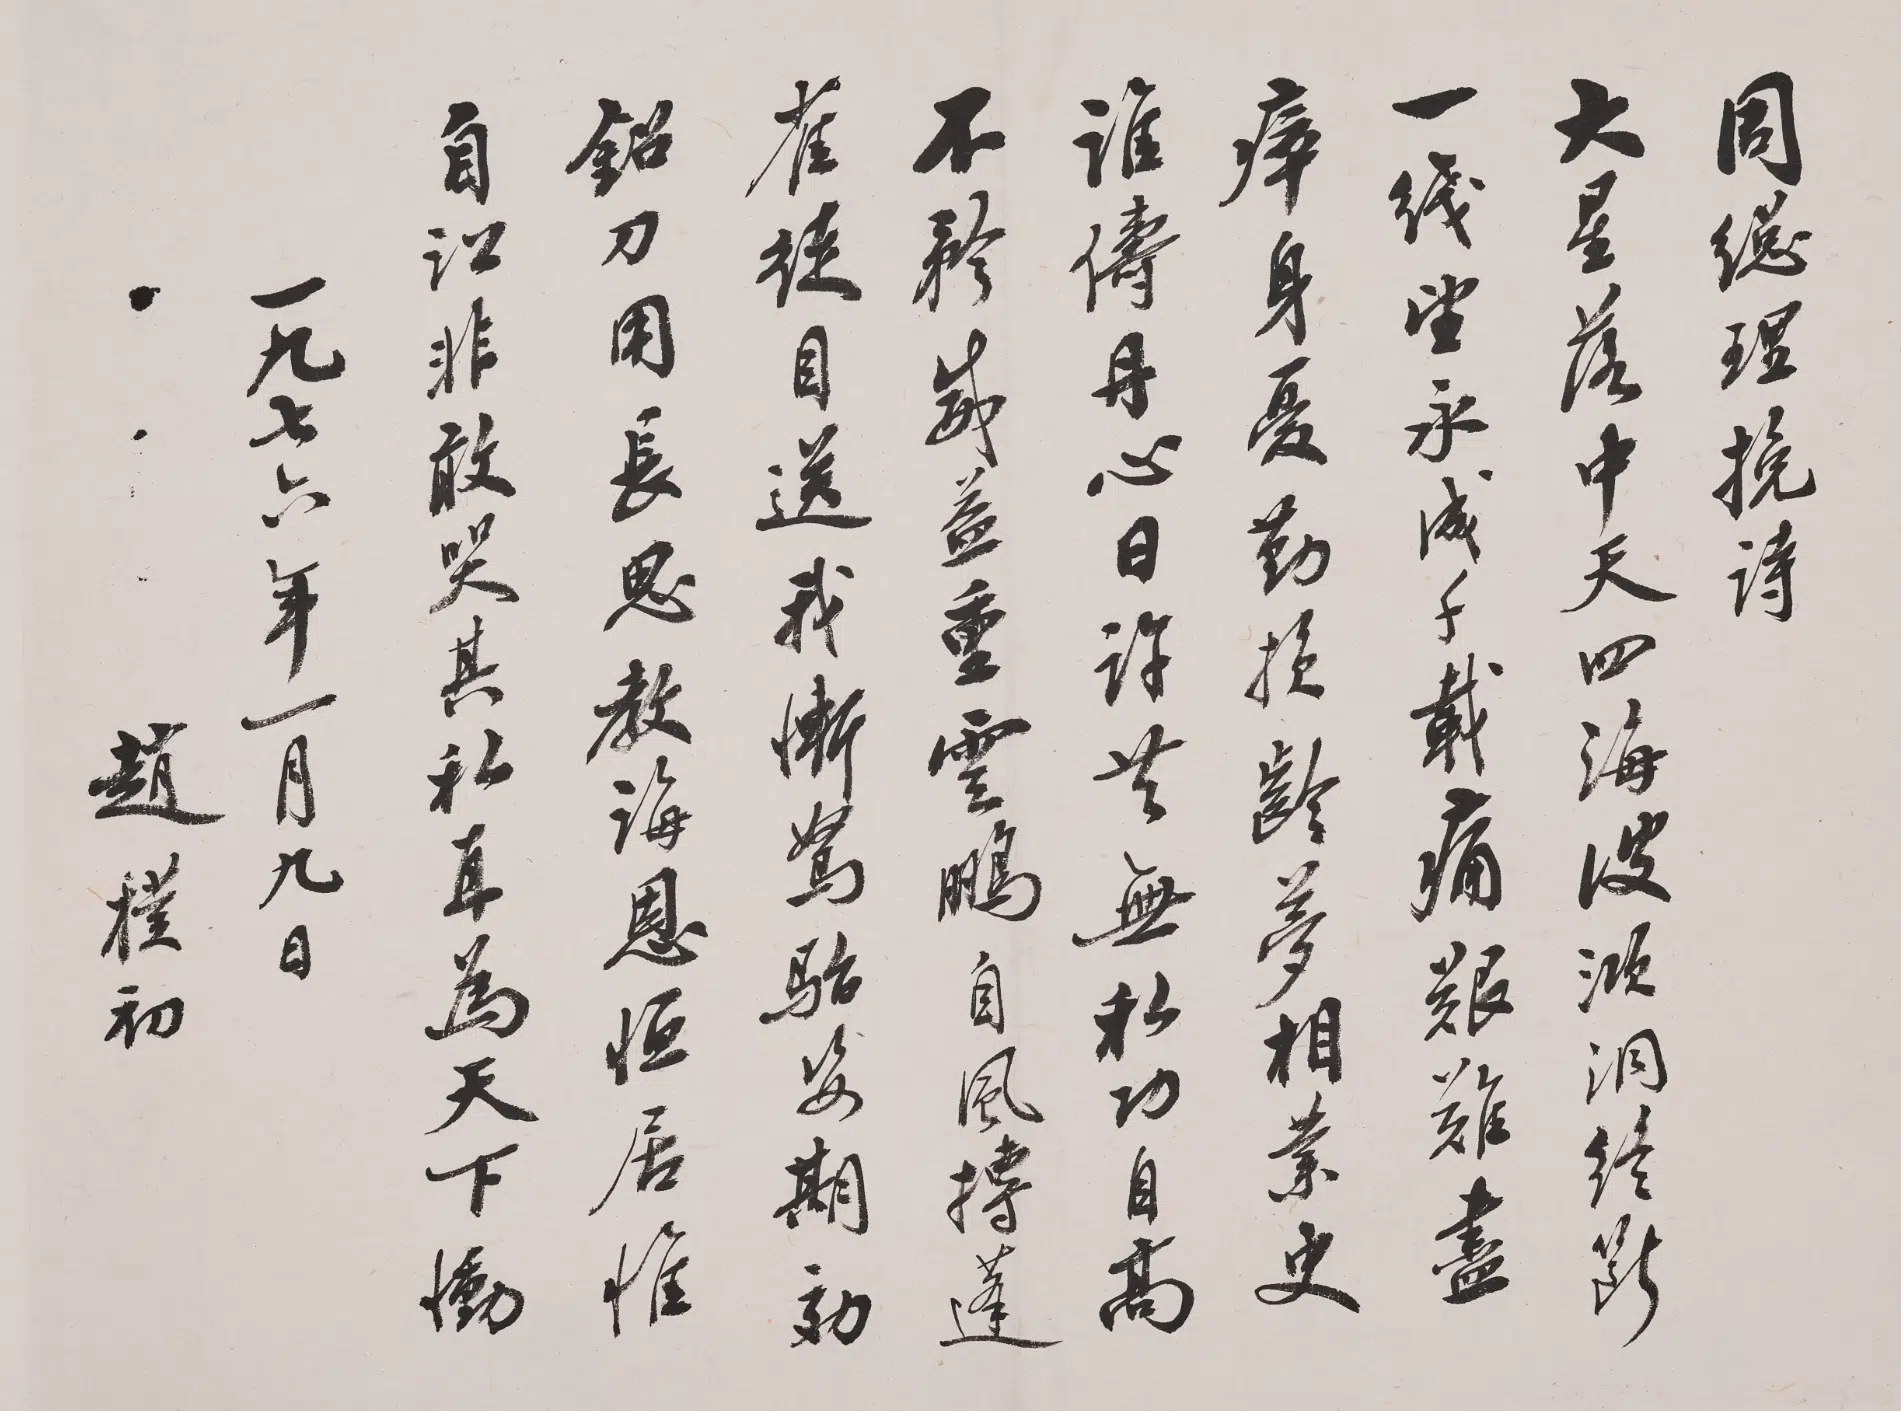 周總理挽詩
大星落中天四海波澒洞終斷
一线望永成千載痛艱難盡
瘁身憂勤損齡夢相業史
誰儔丹心日許共無私功自高
不矜威益重雲鵬自風摶蓬
雀徒目送我慚駑駘姿期効
鉛刀用長思教誨恩恒居惟
自訟非敢哭其私直為天下慟
一九七六年一月九日
趙樸初